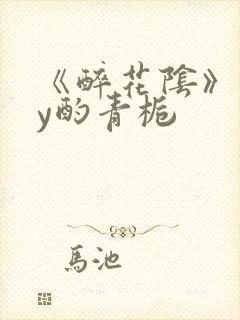 《醉花陰》
y酌青梔
馬池